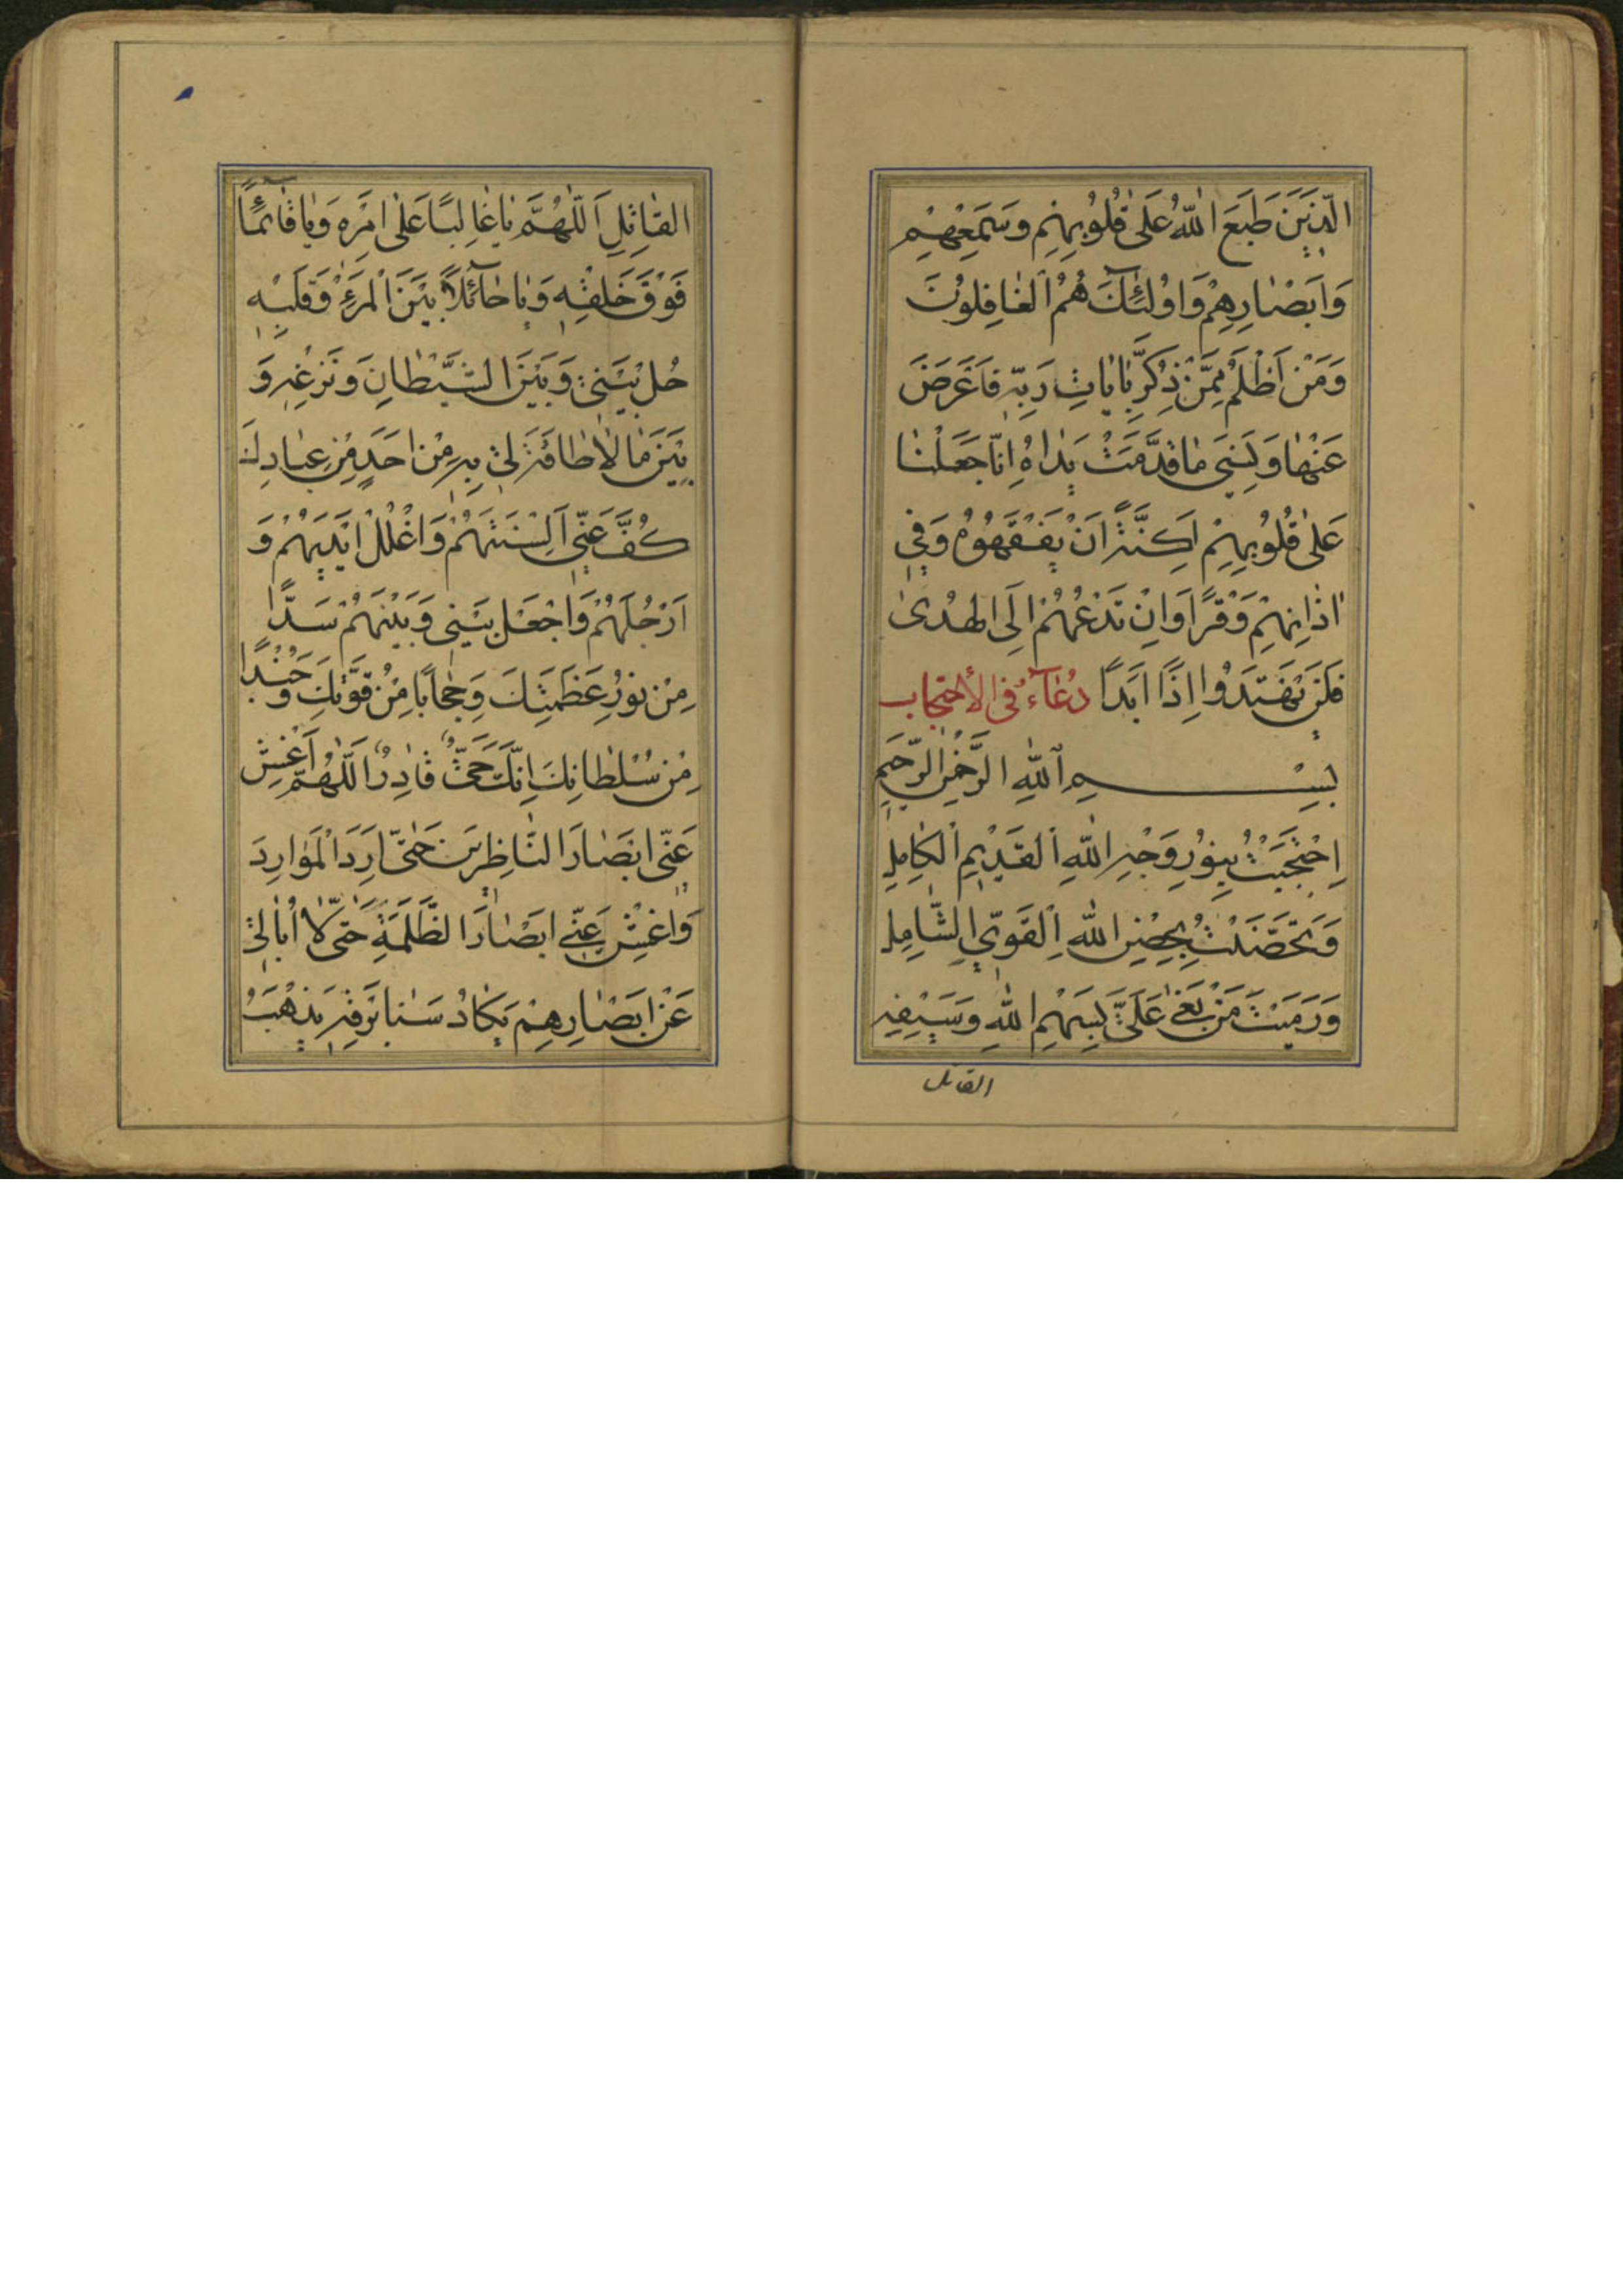 الَّذِينَ طَبَعَ اللّٰهُ عَلىٰ قُلُوبِهِمْ وَسَمْعِهِمْ
وَاَبْصٰارِهِمْ وَاُولٰئِكَ هُمُ الْغٰافِلُونَ
وَمَنْ اَظْلَمُ مِمَّنْ ذُكِّرَ بِاٰيٰاتِ رَبِّهِ فَاَعْرَضَ
عَنْهٰا وَنَسِيَ مٰا قَدَّمَتْ يَدٰاهُ اِنّٰا جَعَلْنٰا
عَلىٰ قُلُوبِهِمْ اَكِنَّةً اَنْ يَفْقَهُوهُ وَفِي
اٰذٰانِهِمْ وَقْرًا وَاِنْ تَدْعُهُمْ اِلَى الْهُدىٰ
فَلَنْ يَهْتَدُوا اِذًا اَبَدًا دُعٰآءُ فِي الْاِحْتِجٰابِ
بِسْمِ اللّٰهِ الرَّحْمٰنِ الرَّحِيمِ
اِحْتَجَبْتُ بِنُورِ وَجْهِ اللّٰهِ الْقَدِيمِ الْكٰامِلِ
وَتَحَصَّنْتُ بِحِصْنِ اللّٰهِ الْقَوِيِّ الشّٰامِلِ
وَرَمَيْتُ مَنْ بَغىٰ عَلَيَّ بِسَهْمِ اللّٰهِ وَسَيْفِهِ
القاتل
الْقٰاتِلِ اَللّٰهُمَّ يٰا غٰالِبًا عَلىٰ اَمْرِهِ وَيٰا قٰآئِمًا
فَوْقَ خَلْقِهِ وَيٰا حٰآئِلًا بَيْنَ الْمَرْءِ وَقَلْبِهِ
حُلْ بَيْنِي وَبَيْنَ الشَّيْطٰانِ وَنَزْغِهِ وَ
بَيْنَ مٰا لٰا طٰاقَةَ لِي بِهِ مِنْ اَحَدٍ مِنْ عِبٰادِكَ
كُفَّ عَنِّي اَلْسِنَتَهُمْ وَاغْلُلْ اَيْدِيَهُمْ وَ
اَرْجُلَهُمْ وَاجْعَلْ بَيْنِي وَبَيْنَهُمْ سَدًّا
مِنْ نُورِ عَظَمَتِكَ وَحِجٰابًا مِنْ قُوَّتِكَ وَجُنْدًا
مِنْ سُلْطٰانِكَ اِنَّكَ حَيٌّ قٰادِرٌ اَللّٰهُمَّ اَغْشِ
عَنِّي اَبْصٰارَ النّٰاظِرِينَ حَتّىٰ اَرِدَ الْمَوٰارِدَ
وَاغْشِ عَنِّي اَبْصٰارَ الظَّلَمَةِ حَتّىٰ لٰا اُبٰالِيَ
عَنْ اَبْصٰارِهِمْ يَكٰادُ سَنٰا بَرْقِهِ يَذْهَبُ